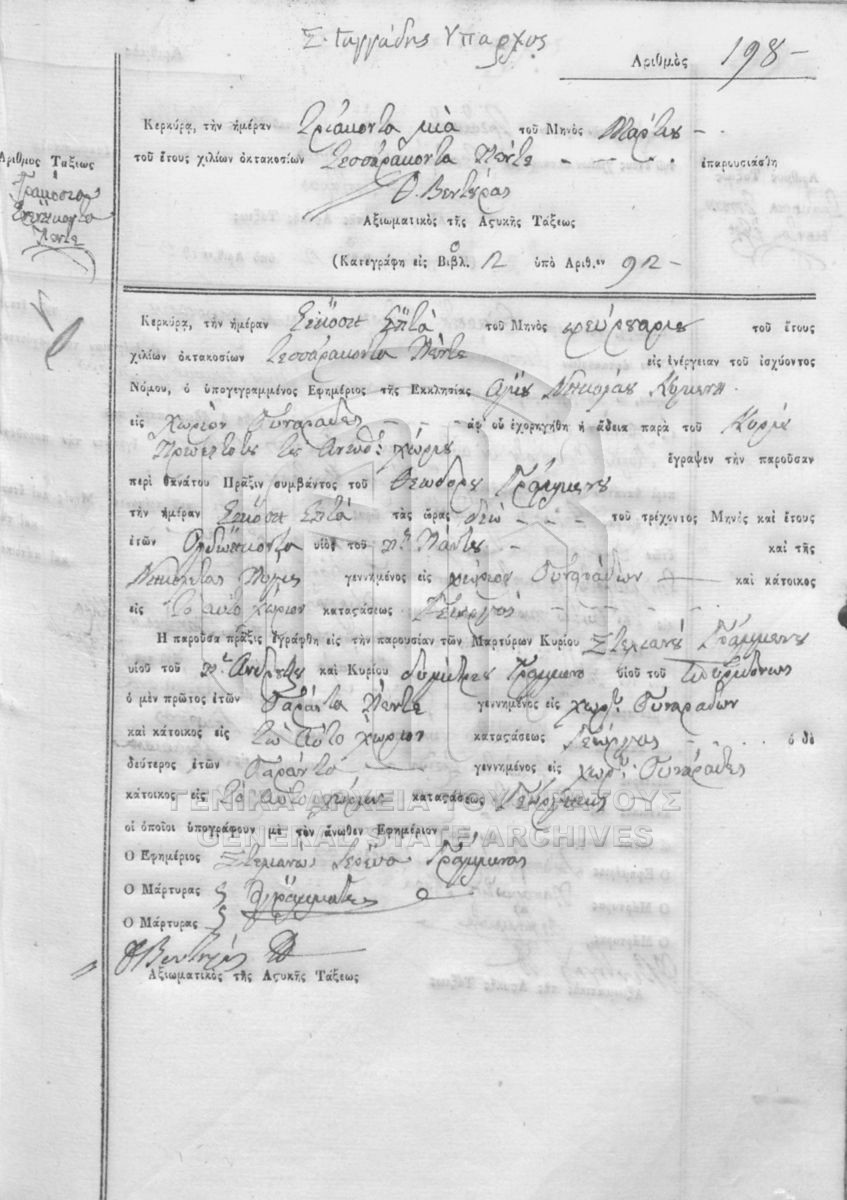 Σ. Γαγγάδης Ύπαρχος
Αριθμὸς 198 -
Κερκύρᾳ, τὴν ἡμέραν τριάκοντα μιὰ τοῦ Μηνὸς Μαρτίου -
Αριθμος Ταξιως
τοῦ ἔτους χιλίων ὀκτακοσίων τεσσαράκοντα πέντε - - - - ἐπαρουσιάσθη
Θ. Βεντύρας
Αξιωματικὸς τῆς Αςυκῆς Τάξεως
πέντε
(Κατεγράφη εἰς Βιβλ. 12 ὑπὸ Αριθ.εν 92 -
Κερκύρᾳ, τὴν ἡμέραν εἴκοσι ἑπτὰ τοῦ Μηνὸς φευρουαρίου τοῦ ἔτους
χιλίων ὀκτακοσίων τεσσαράκοντα πέντε εἰς ἐνέργειαν τοῦ ἰσχύοντος
Νόμου, ὁ ὑπογεγραμμένος Εφημέριος τῆς Εκκλησίας Αγίου Νικολάου
εἰς χωρίον Συναράδες - - - ἀφ᾽ οὗ ἐχορηγήθη ἡ ἄδεια παρὰ τοῦ Κυρίου
χωρίου ἔγραψεν τὴν παροῦσαν
περὶ θανάτου Πρᾶξιν συμβάντος τοῦ Θεωδόρου Γράμμενου
τὴν ἡμέραν εἴκοσι ἑπτὰ τὰς ὥρας δύω - - - τοῦ τρέχοντος Μηνὸς καὶ ἔτους
ἐτῶν ὀγδωήκοντα υἱοῦ τοῦ π. Πάντου - καὶ τῆς
Νικολέτας γεννημένος εἰς χωρίον Συναράδων καὶ κάτοικος
εἰς τὸ αὐτὸ χωρίον καταςάσεως Γεωργός - - - - -
Η παροῦσα πρᾶξις ἐγράφθη εἰς τὴν παρουσίαν τῶν Μαρτύρων Κυρίου Στελιανοῦ Γράμμενου
υἱοῦ τοῦ π. Ἀνδρέου καὶ Κυρίου δημήτρου Γράμμενο υἱοῦ τοῦ Σπυρίδωνος
ὁ μὲν πρῶτος ἐτῶν Σαράντα πέντε γεννημένος εἰς χωρ. Συναράδων
καὶ κάτοικος εἰς τὸ αὐτὸ χωρίον καταςάσεως Γεωργός - - ὁ δὲ
δεύτερος ἐτῶν Σαράντα γεννημένος εἰς χωρ. Συναράδες
κάτοικος εἰς τὸ αὐτὸ χωρίον καταςάσεως Γεωργός
ΓΕΝΙΚΑ ΑΡΧΕΙΑ ΤΟΥ ΚΡΑΤΟΥΣ
οἱ ὁποῖοι ὑπογράφουν μὲ τὸν ἄνωθεν Εφημέριον
GENERAL STATE ARCHIVES
Ο Εφημέριος Στελιανὸς Ιερεύς Γράμμενος
Ο Μάρτυρας } Αγράμματοι
Ο Μάρτυρας }
Θ Βεντύρας
Αξιωματικὸς τῆς Αςυκῆς Τάξεως